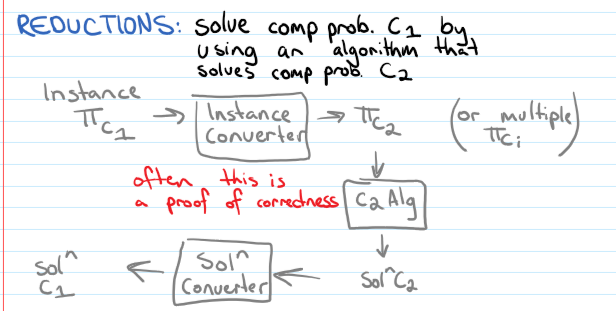 REDUCTIONS: solve comp prob. C1 by
using an algorithm that
solves comp prob. C2
Instance
πC1 → Instance Converter → πC2 (or multiple πCi)
often this is
a proof of correctness
C2 Alg
Sol^n C1 ← Sol^n Converter ← Sol^n C2